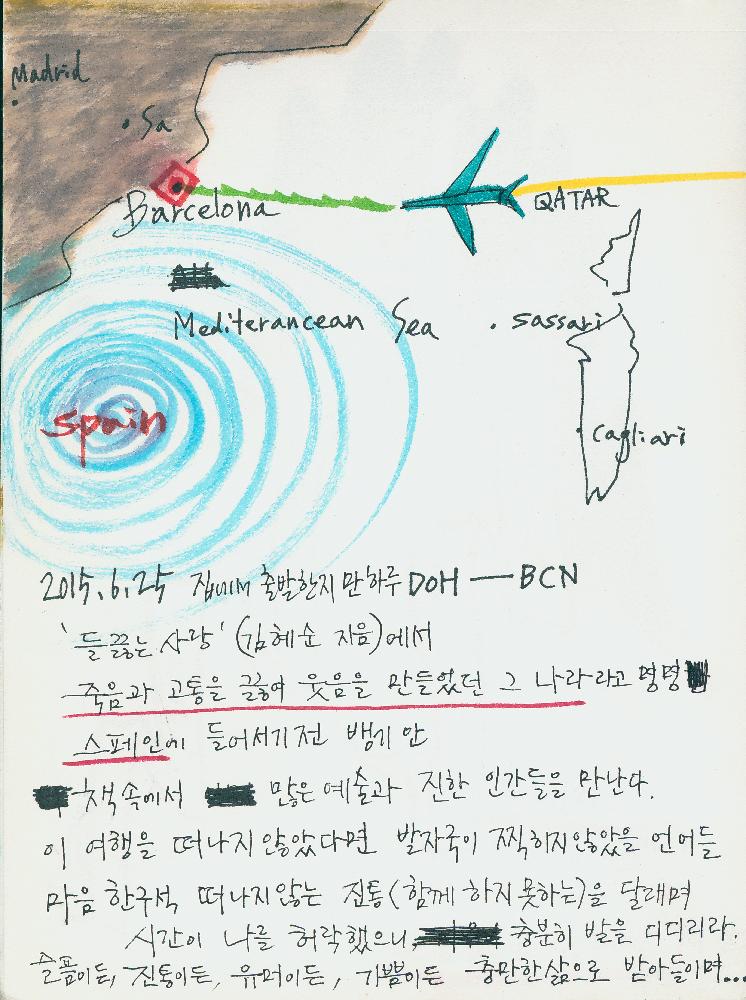 Madrid
Sa
Barcelona
QATAR
Mediterancean Sea
sassari
spain
cagliari
2015.6.25 집에서 출발한지 만 하루 DOH — BCN
'들끓는 사랑' (김혜순 지음)에서
죽음과 고통을 끓여 웃음을 만들었던 그 나라라고 명명
스페인에 들어서기전 뱅기 안
책속에서 많은 예술과 진한 인간들을 만난다.
이 여행을 떠나지 않았다면 발자국이 찍히지않았을 언어들
마음 한구석 떠나지않는 진통(함께 하지 못하는)을 달래며
시간이 나를 허락했으니, 충분히 발을 디디리라.
슬픔이든, 진통이든, 유머이든, 기쁨이든 충만한삶으로 받아들이며...